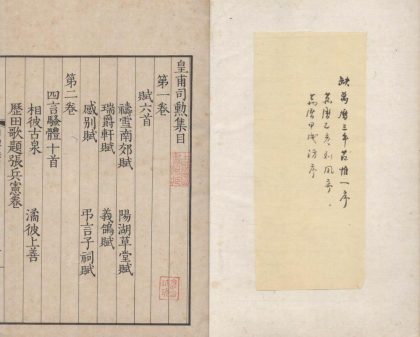 缺萬曆三年范惟一序
萬曆乙亥刘凤序.
萬曆甲戌汸序
皇甫司勳集目
第一卷
賦六首
禱雪南郊賦 陽湖草堂賦
瑞爵軒賦 義鴿賦
感别賦 弔言子祠賦
第二卷
四言騷體十首
相彼古泉 潏彼上善
歷田歌題張兵憲卷